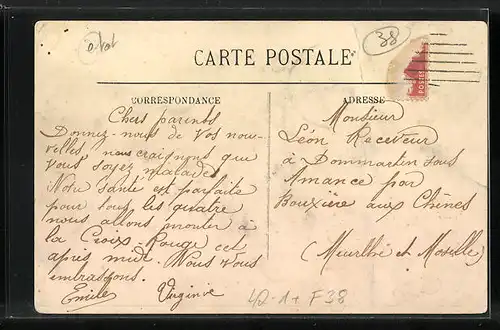 38
CARTE POSTALE
POSTES
CORRESPONDANCE
Chers parents
Donnez-nous de vos nou-
velles nous craignons que
vous soyez malades
Notre santé est parfaite
pour tous les quatre
nous allons monter à
la Croix-Rouge cet
après midi. Nous vous
embrassons.
Emile Virginie
ADRESSE
Monsieur
Léon Receveur
à Dommartin sous
Amance par
Bouxière aux Chênes
(Meurthe et Moselle)
42-1+ F38